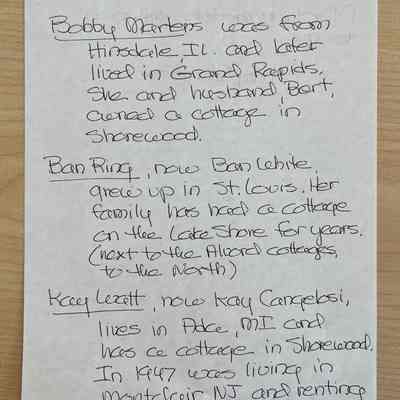 Bobby Martens was from
Hinsdale, IL. and later
lived in Grand Rapids.
She and husband, Bert,
owned a cottage in
Shorewood.
Ban Ring, now Ban White,
grew up in St. Louis. Her
family has had a cottage
on the Lake Shore for years.
(next to the Alvord cottages,
to the North)
Kay, now Kay Cangelosi,
lives in Ada, MI and
has a cottage in Shorewood.
In 1947 was living in
Montclair NJ and renting